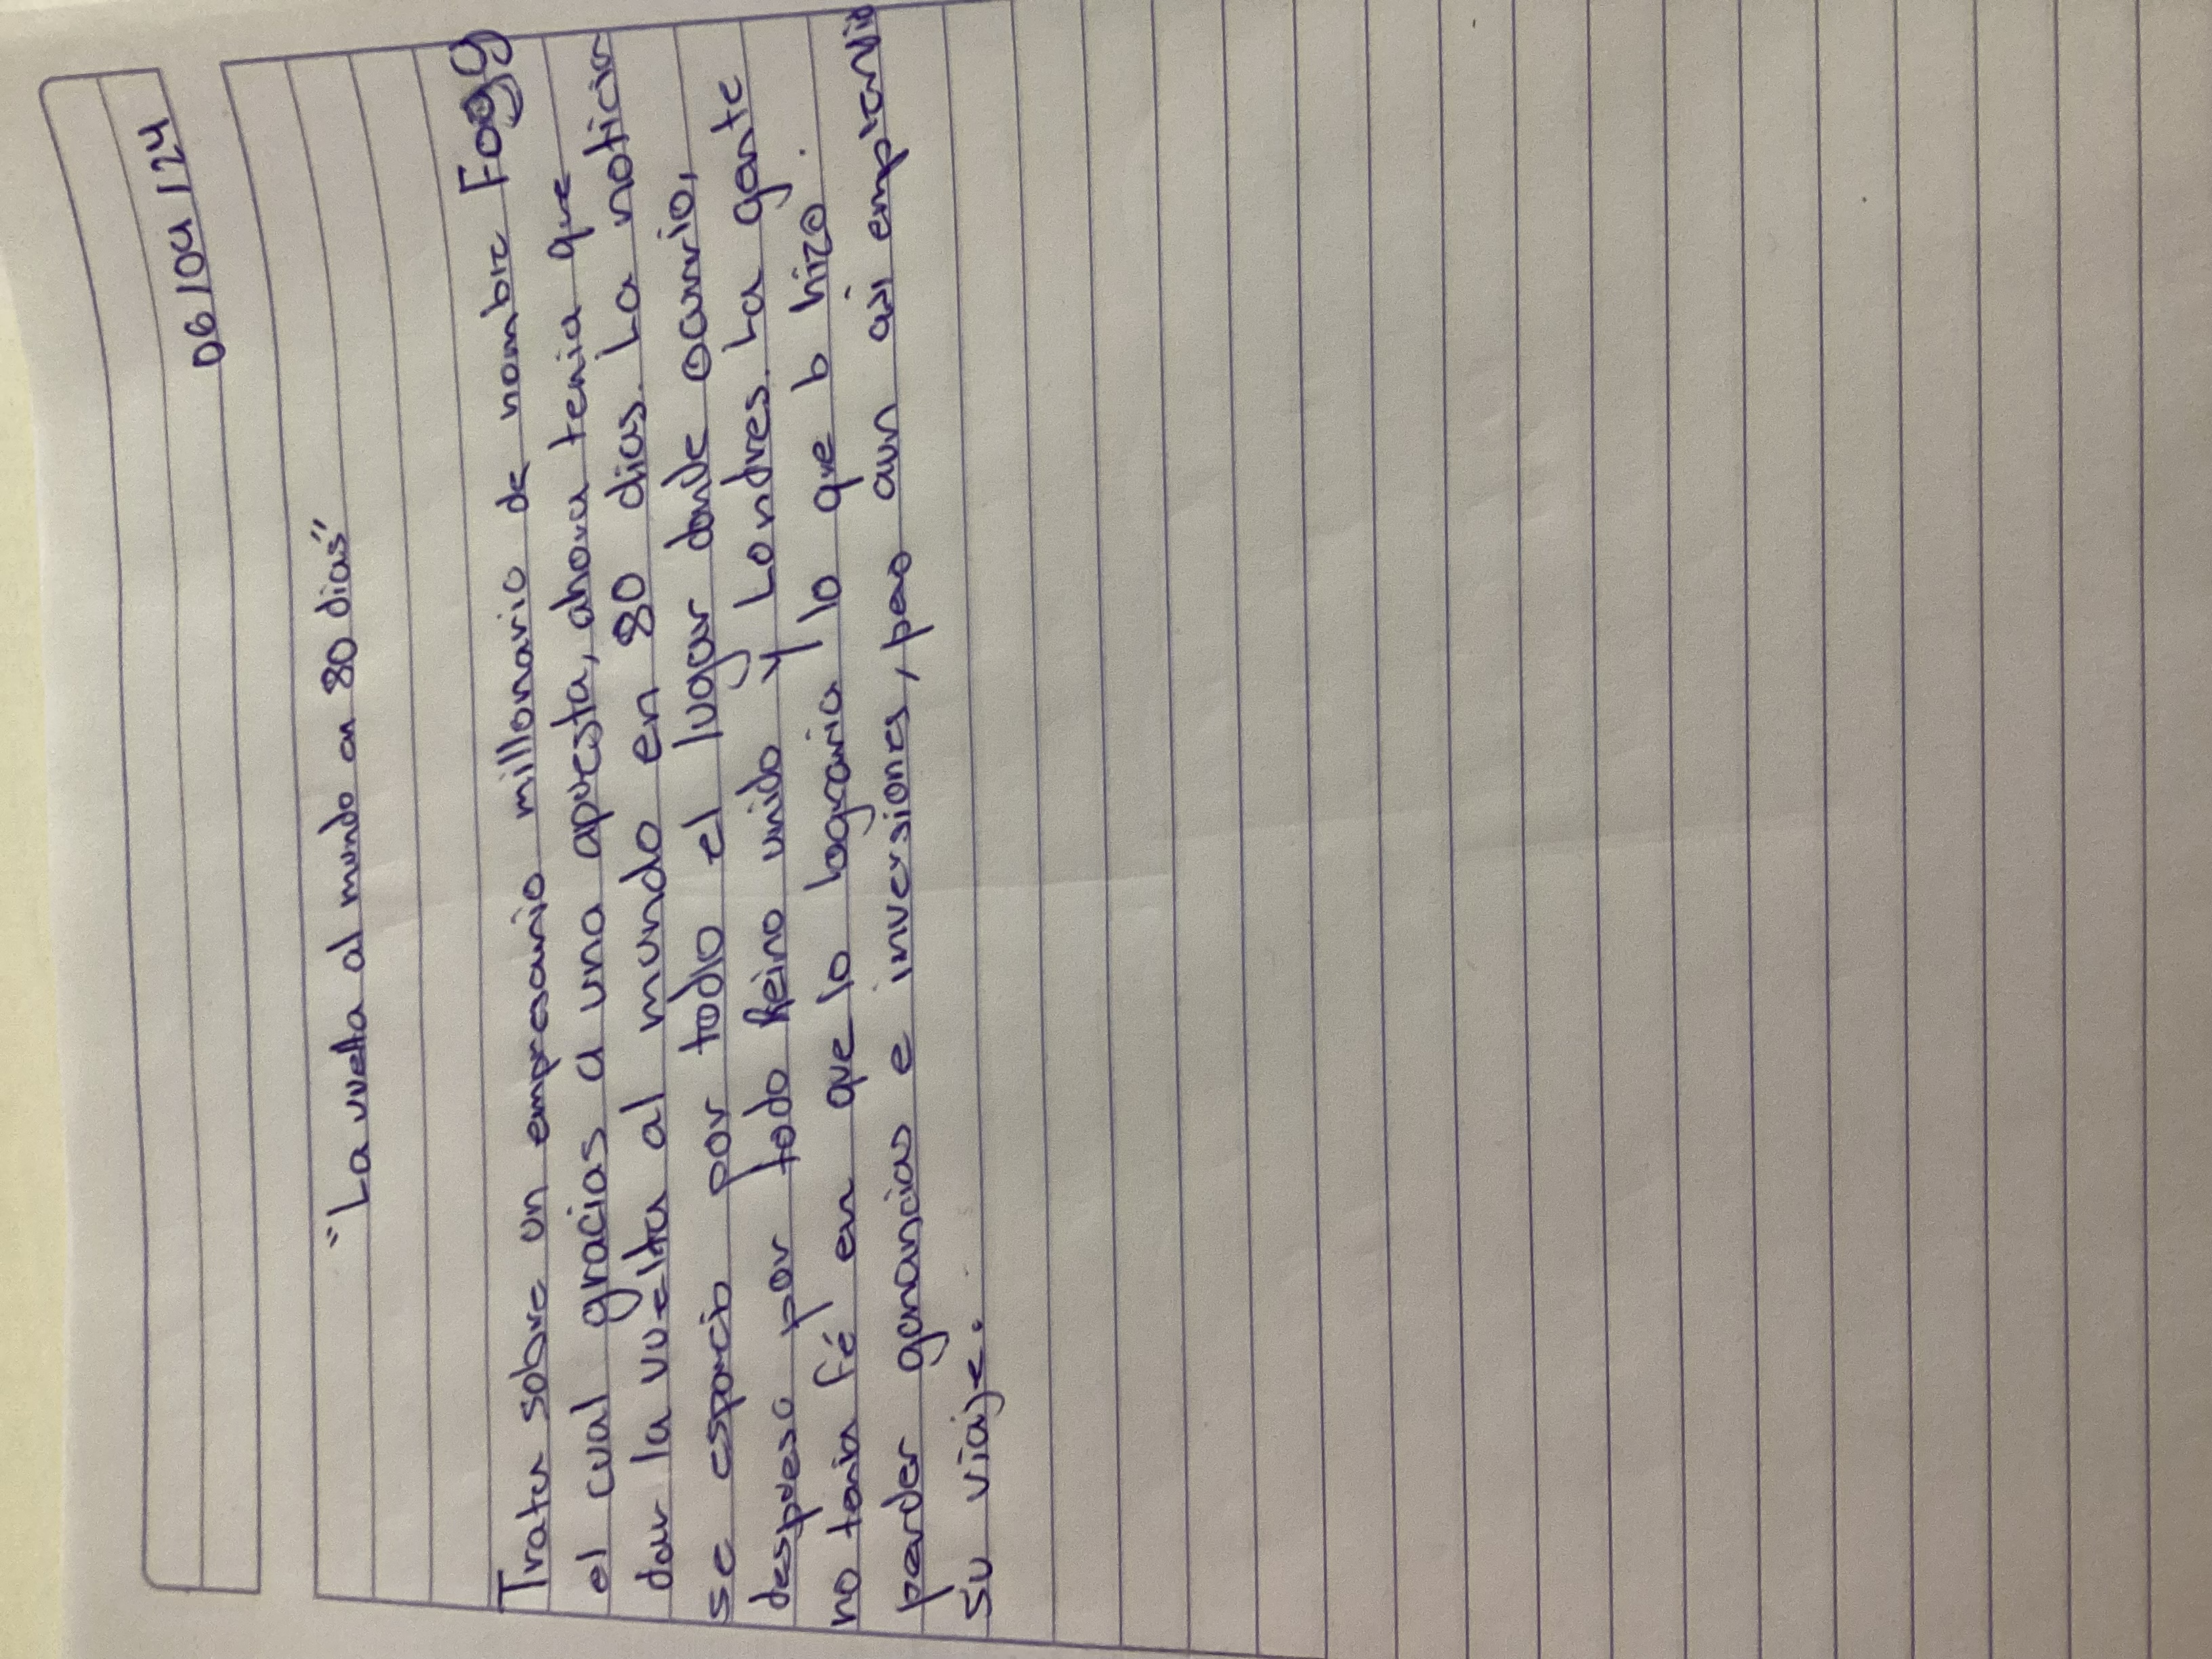 06/04/24
"La vuelta al mundo en 80 dias"
Trata sobre un empresario millonario de nombre Fogg
el cual gracias a una apuesta, ahora tenia que
dar la vuelta al mundo en 80 dias. La noticia
se esparcio por todo el lugar donde ocurrio,
despues por todo Reino unido y Londres. La gente
no tenia fé en que lo lograria lo que lo hizo
perder ganancias e inversiones, pero aun asi emprendio
su viaje.